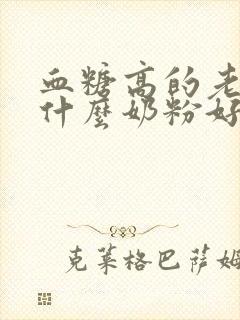 血糖高的老
什麼奶粉好
克莱格巴萨姆